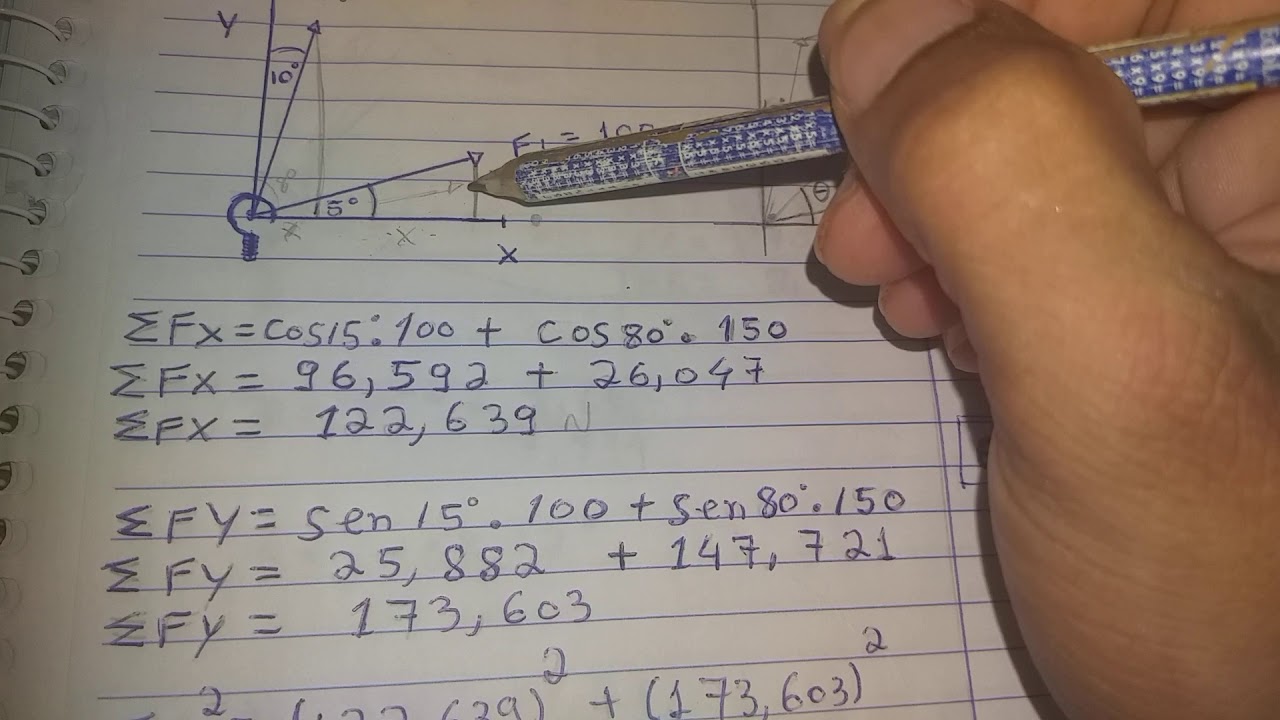 Y
10°
F1 = 100
15°
x
x
X
θ
ΣFx = Cos15°.100 + cos80°. 150
ΣFx = 96,592 + 26,047
ΣFX = 122,639 N
ΣFY = Sen15°. 100 + sen80°.150
ΣFy = 25,882 + 147,721
ΣFy = 173,603